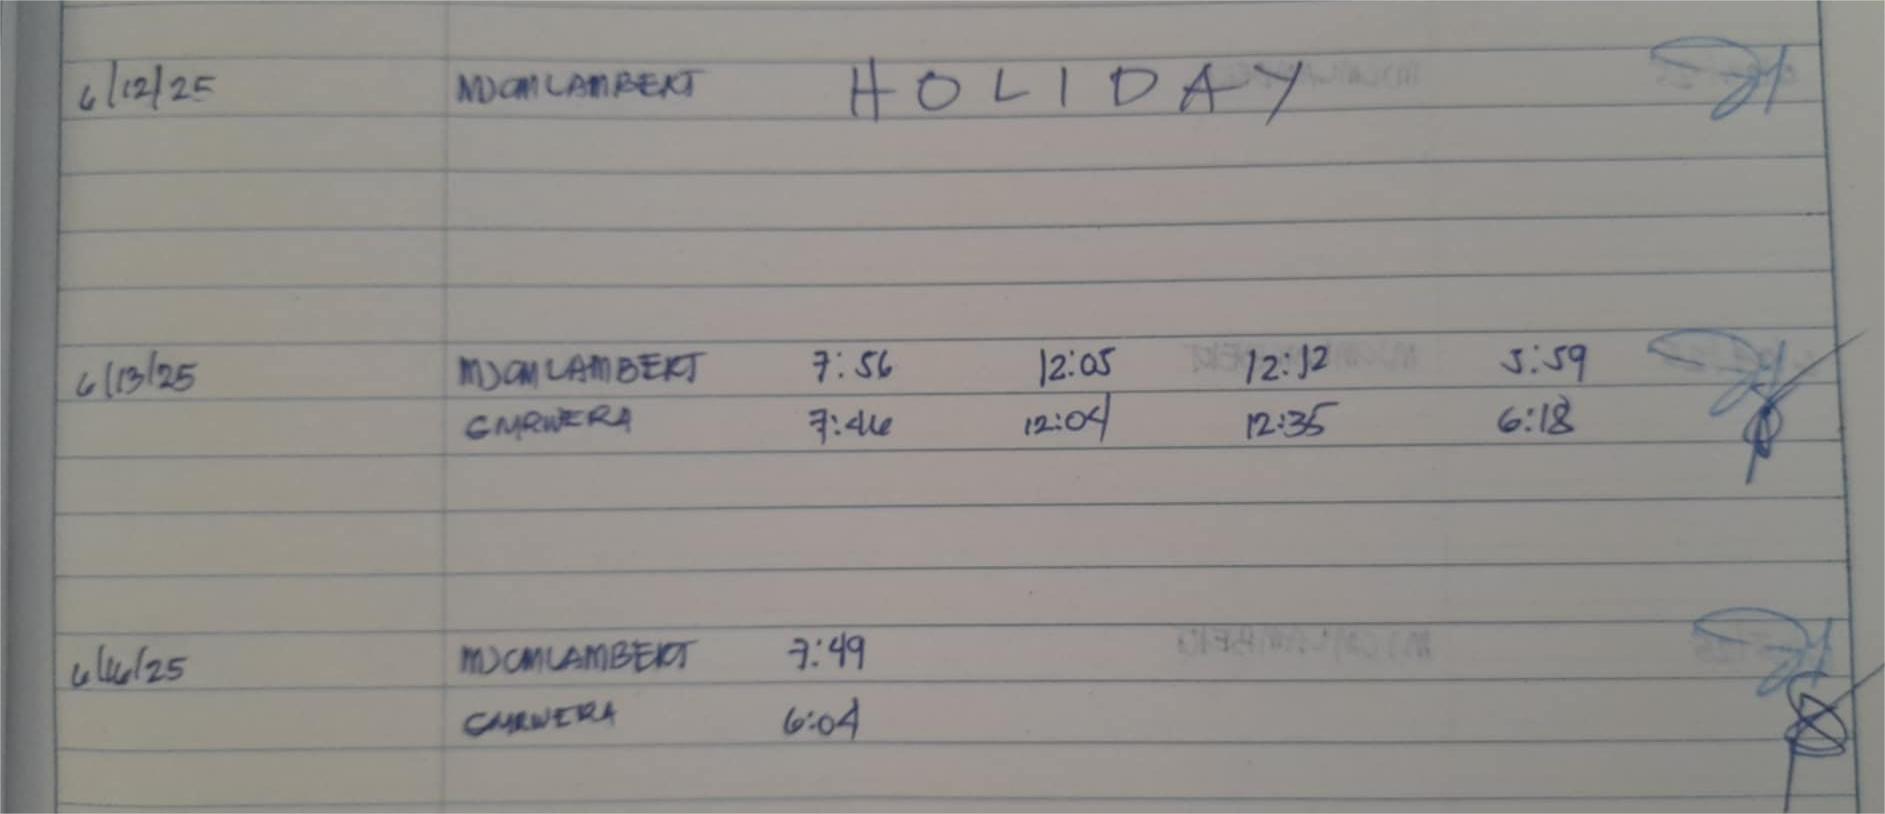 6/12/25 MJCMLAMBERT HOLIDAY
6/13/25 MJCMLAMBERT 7:56 12:05 12:12 5:59
GMRWERA 7:46 12:04 12:35 6:18
6/16/25 MJCMLAMBERT 7:49
GMRWERA 6:04